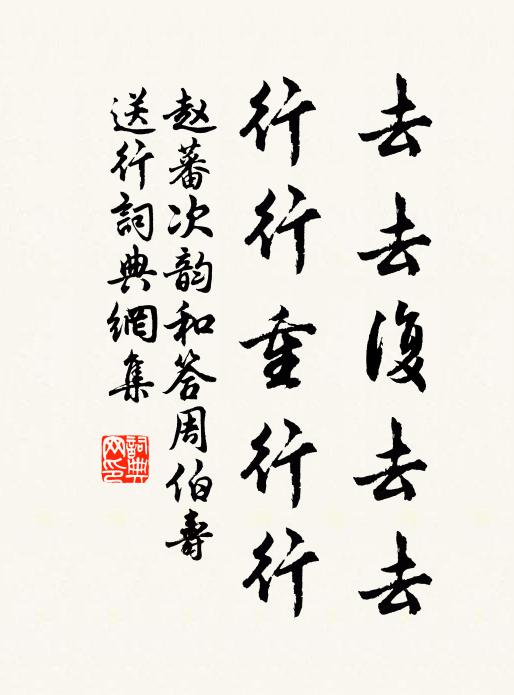 去去復去去
行行重行行
赵蕃次韵和答周伯壽
送行詞典網集
詞典網印